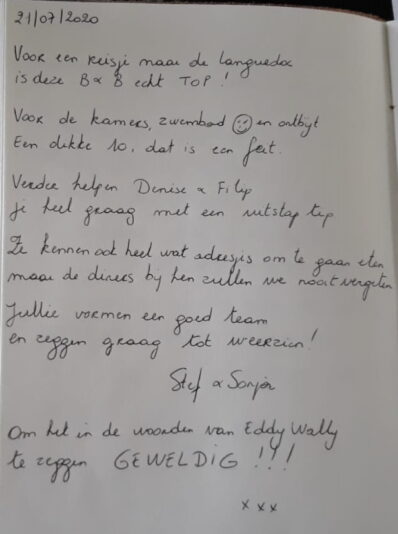 21/07/2020
Voor een reisje naar de Languedoc
is deze B & B echt TOP !
Voor de kamers, zwembad ☺ en ontbijt
Een dikke 10, dat is een feit.
Verder helpen Denise & Filip
je heel graag met een uitstap tip
Ze kennen ook heel wat adresjes om te gaan eten
maar de diners bij hen zullen we nooit vergeten
Jullie vormen een goed team
en zeggen graag tot weerzien!
Stef & Sonja
Om het in de woorden van Eddy Wally
te zeggen GEWELDIG !!!
x x x